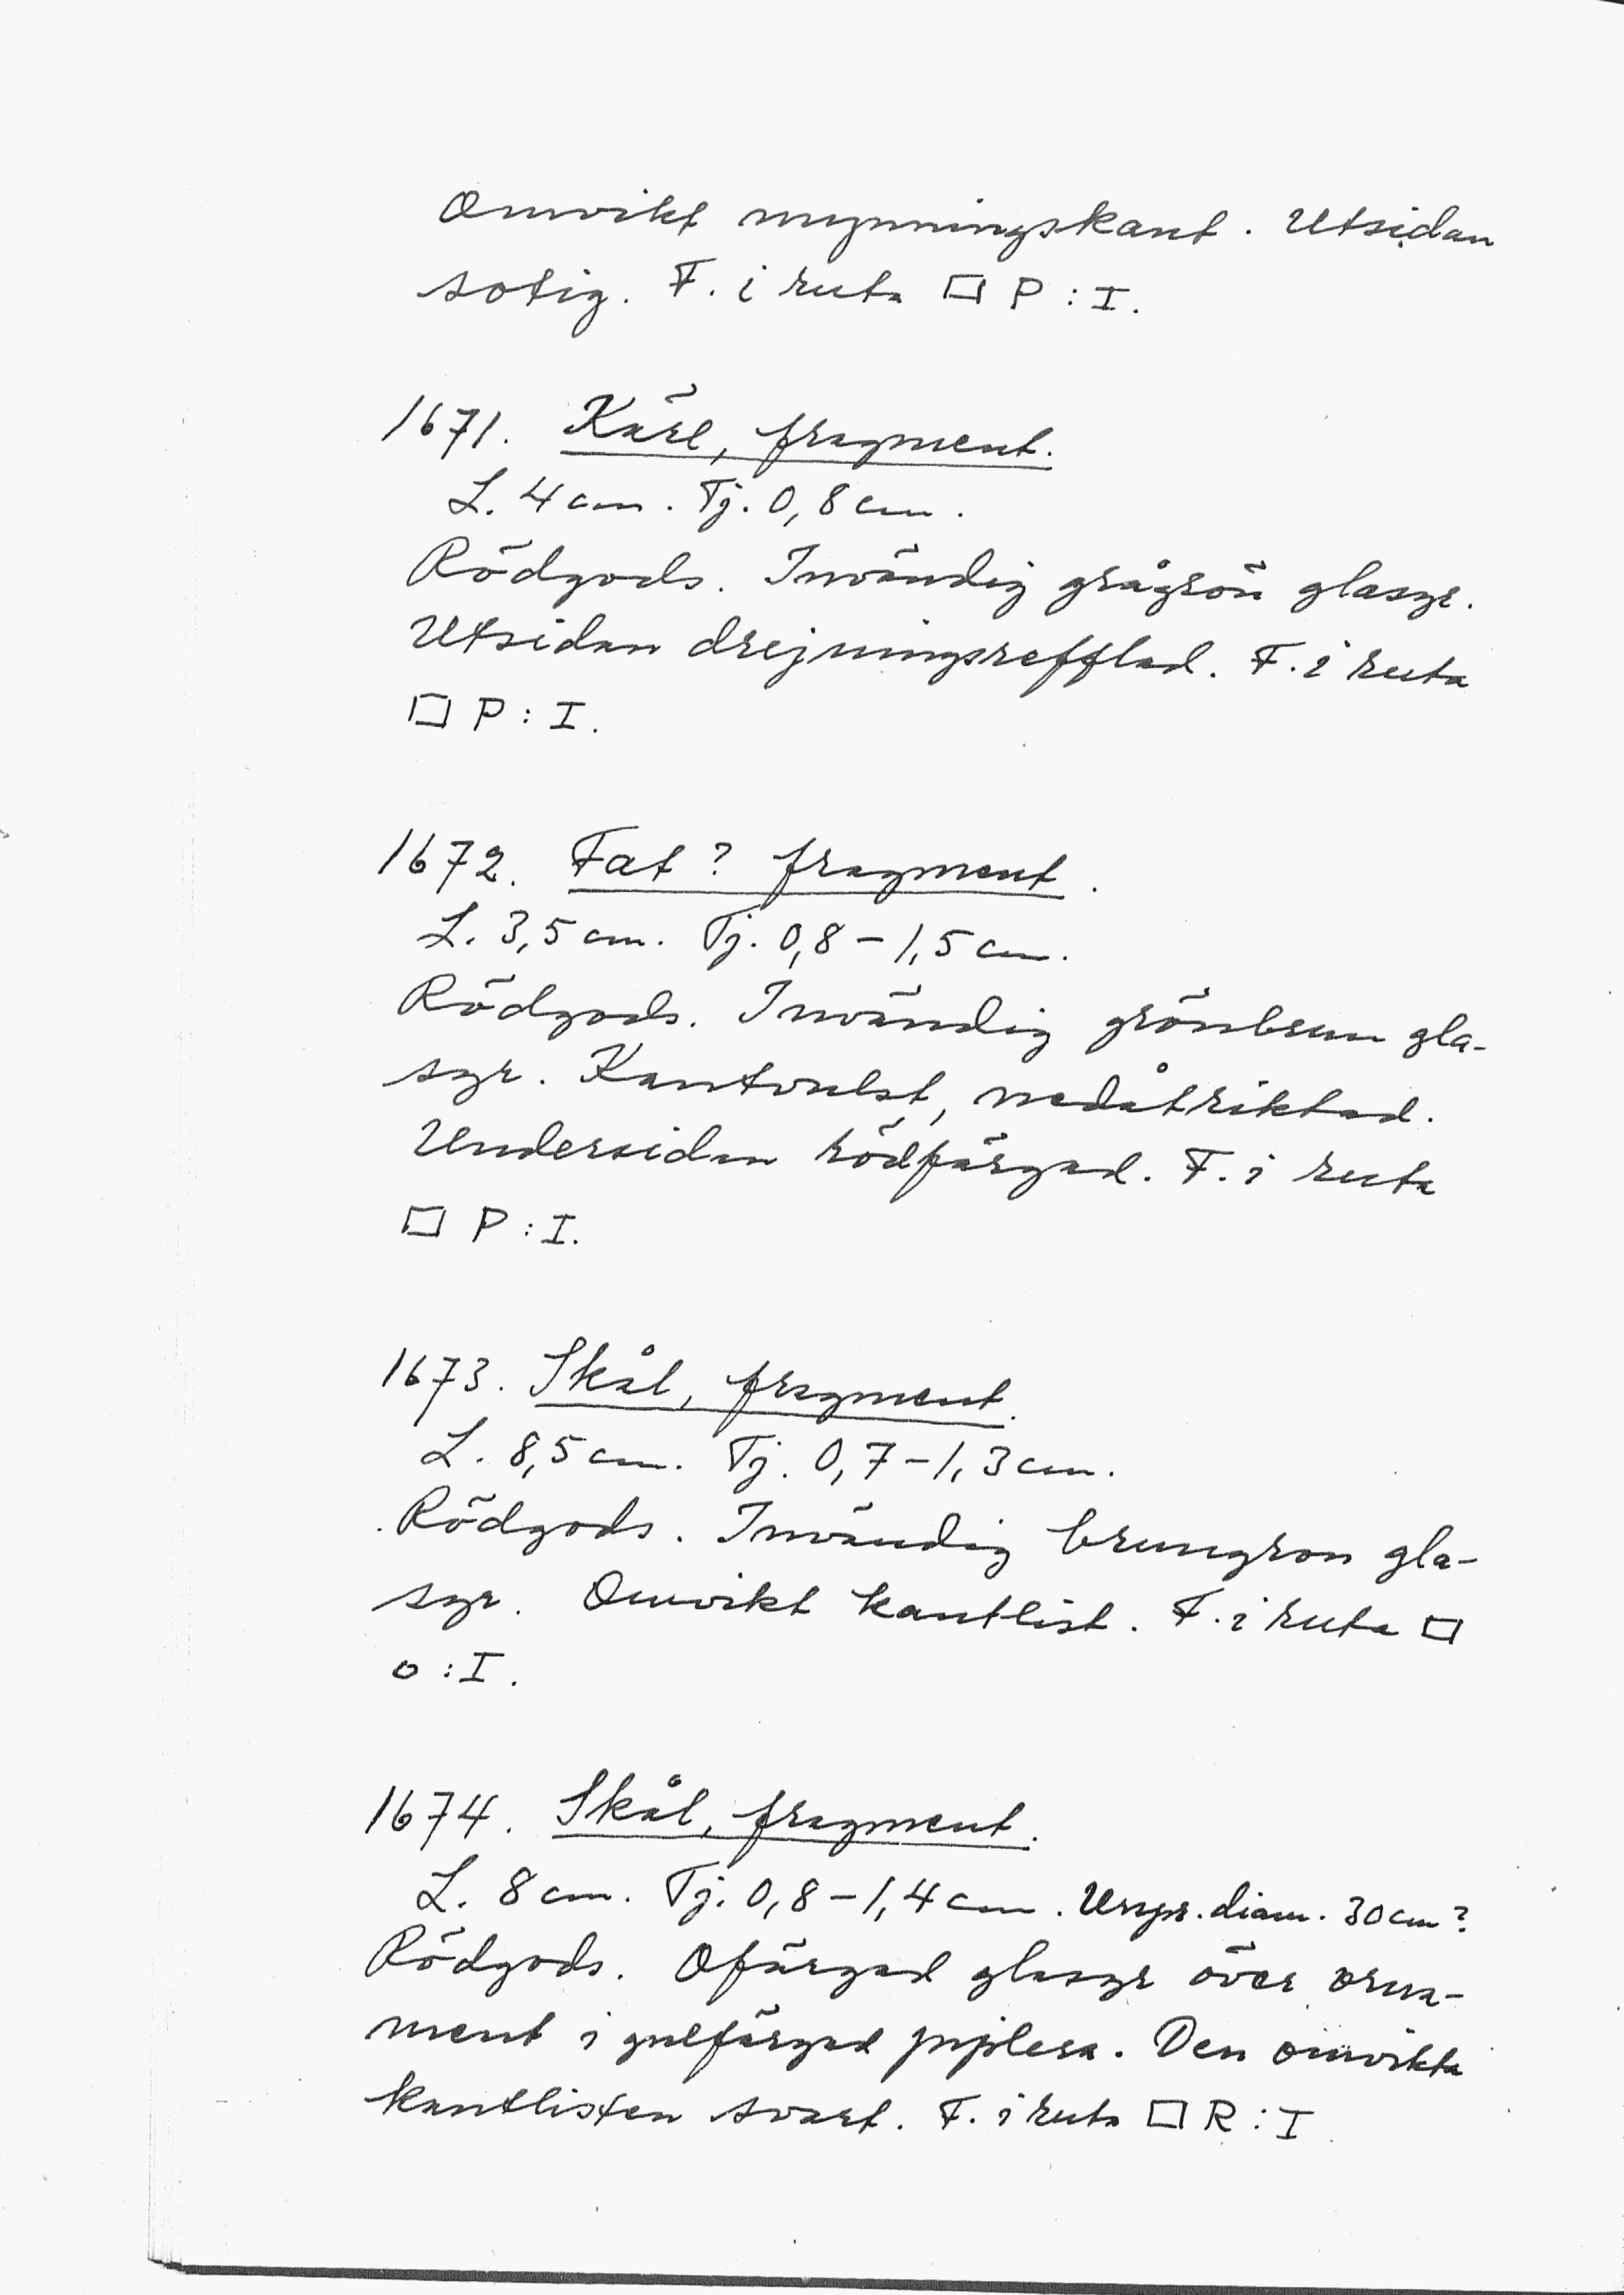 Omvikt mynningskant. Utsidan
sotig. F. i ruta □ P : I.
1671. Kärl, fragment.
L. 4 cm. Tj. 0,8 cm.
Rödgods. Invändig grågrön glasyr.
Utsidan drejningsrefflad. F. i ruta
□ P : I.
1672. Fat? fragment.
L. 3,5 cm. Tj. 0,8 - 1,5 cm.
Rödgods. Invändig grönbrun gla-
syr. Kantvulst, nedåtriktad.
Undersidan rödfärgad. F. i ruta
□ P : I.
1673. Skål, fragment.
L. 8,5 cm. Tj. 0,7 - 1,3 cm.
Rödgods. Invändig brungron gla-
syr. Omvikt kantlist. F. i ruta □
O : I.
1674. Skål, fragment.
L. 8 cm. Tj. 0,8 - 1,4 cm. Urspr. diam. 30 cm?
Rödgods. Ofärgad glasyr över orna-
ment i gulfärgad piplera. Den omvikta
kantlisten svart. F. i ruta □ R : I